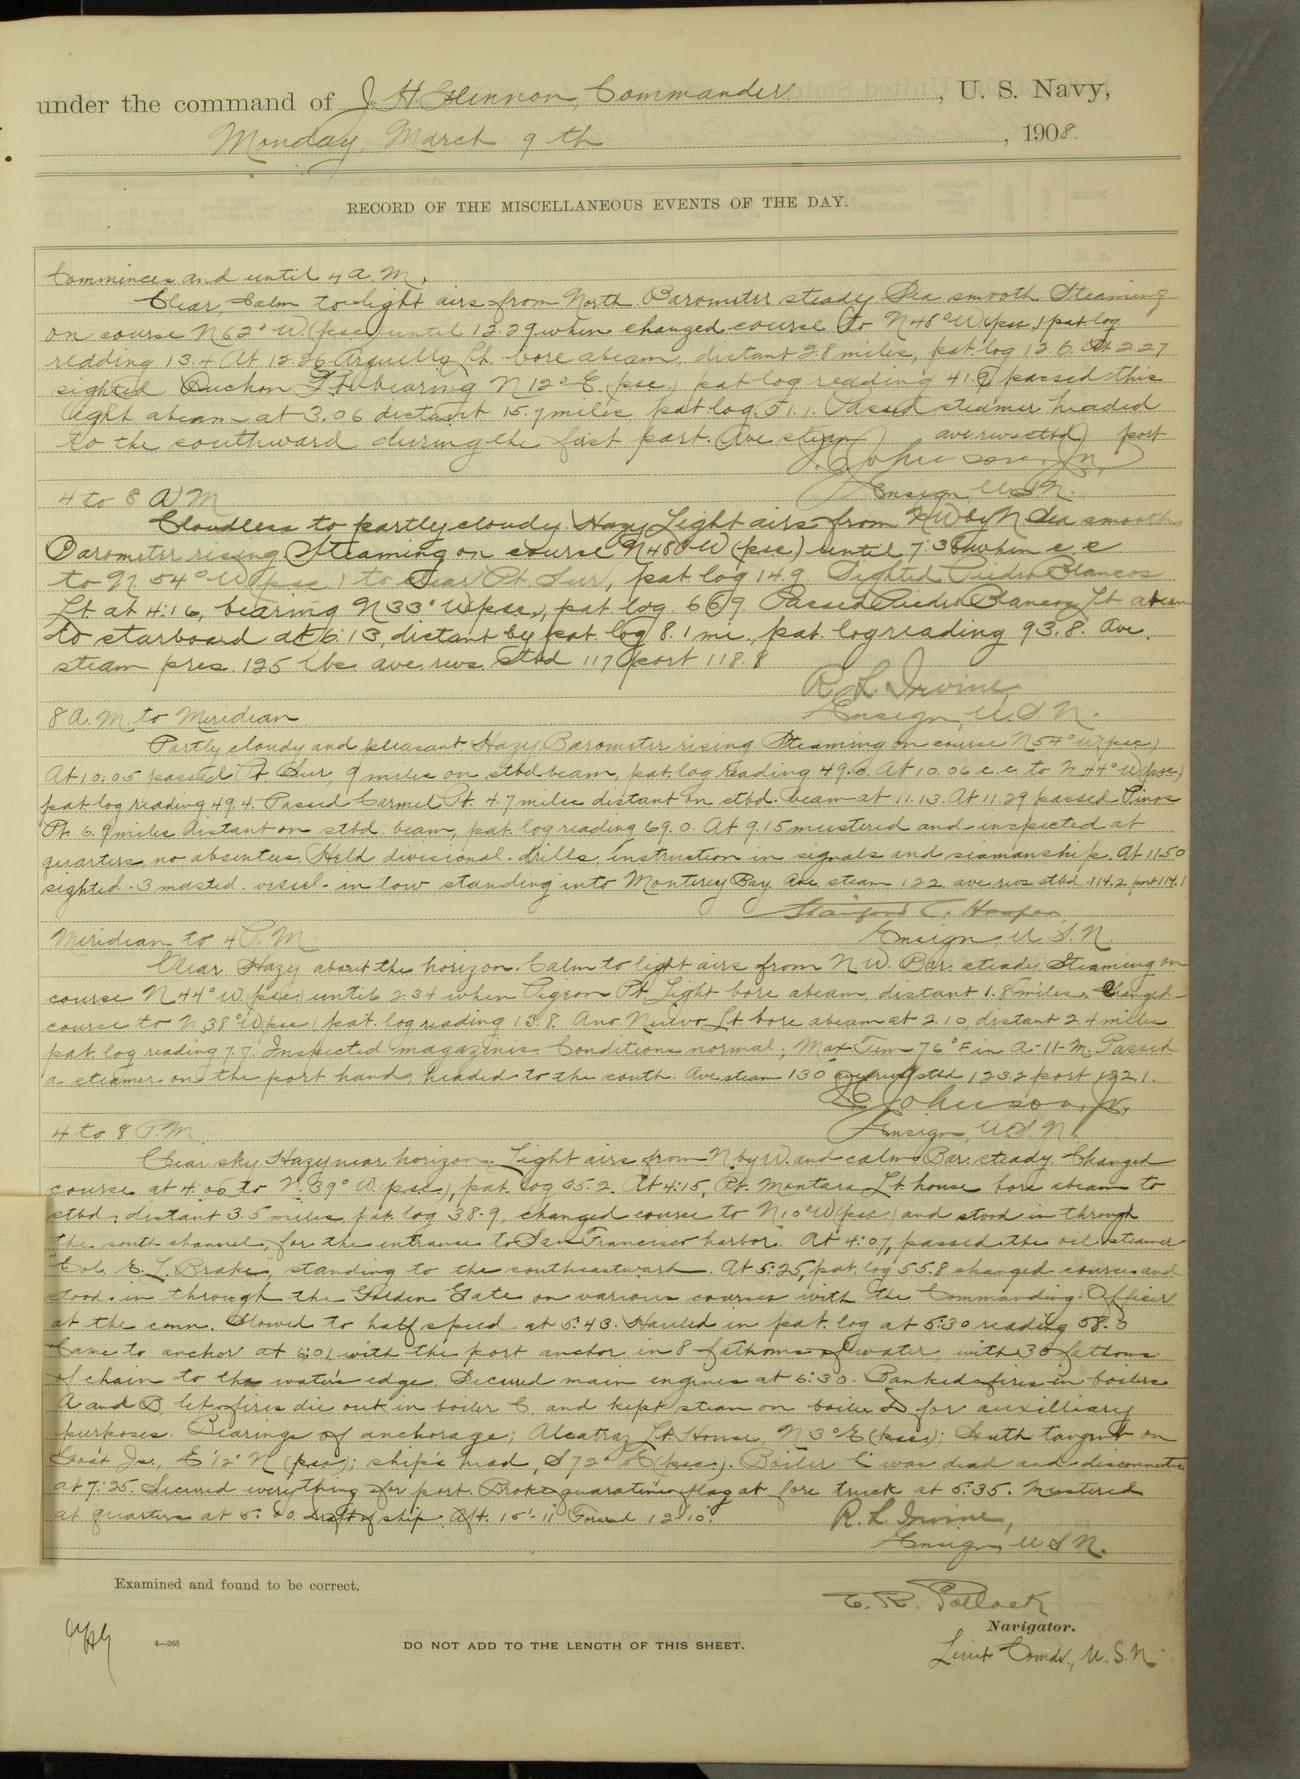 under the command of J. H. Glennon, Commander, U. S. Navy,
Monday, March 9th, 1908.
RECORD OF THE MISCELLANEOUS EVENTS OF THE DAY.
Commences and until 4 a.m.
Clear, Calm to light airs from North. Barometer steady Sea smooth Steaming
on course N 62° W. (psc) until 12.29 when changed course to N 48° W (psc) pat. log
redding 13.4 At 12.26 Arguello Lt. bore abeam, distant 2.8 miles, pat. log 12.6. At 2.27
sighted Buchon Lt. bearing N 12° E. (psc.) pat log redding 41.9 passed this
light abeam at 3.06 distant 15.7 miles pat log 51.1. Passed steamer headed
to the southward during the first part. Ave steam ave revs stbd port
J. Johnson, Jr,
Ensign, U.S.N.
4 to 8 A M
Cloudless to partly cloudy. Hazy Light airs from NW by N Sea smooth
Barometer rising Steaming on course N 48° W (psc.) until 7:38 when c.c
to N 54° W (psc) to clear Pt. Sur, pat. log 14.9. Sighted Piedro Blancos
Lt. at 4:16, bearing N 33° W (psc), pat. log. 66.9. Passed Piedro Blancos Lt abeam
to starboard at 6:13, distant by pat. log 8.1 mi., pat. log reading 93.8. Ave.
steam pres. 125 lbs. ave. revs. Stbd 117 port 118.8
R. L. Irvine,
Ensign, U. S. N.
8 A. M. to Meridian
Partly cloudy and pleasant. Hazy. Barometer rising. Steaming on course N 54° W (psc)
At 10:05 passed Pt. Sur, 9 miles on stbd beam, pat. log reading 49.0. At 10.06 c.c. to N 44° W (psc)
pat. log reading 49.4. Passed Carmel Pt. 4.7 miles distant on stbd. beam at 11.13. At 11.29 passed Pinos
Pt. 6.9 miles distant on stbd. beam, pat. log reading 69.0. At 9.15 mustered and inspected at
quarters no absentees. Held divisional drills, instruction in signals and seamanship. At 11.50
sighted 3 masted vessel in tow standing into Monterey Bay. Ave. steam 122 ave. revs stbd. 114.2 port 114.1
Stanford C. Hooper
Ensign, U. S. N.
Meridian to 4 P. M.
Clear. Hazy about the horizon. Calm to light airs from N W. Bar. steady. Steaming on
course N 44° W. (psc) until 2.34 when Pigeon Pt. Light bore abeam, distant 1.8 miles. Changed
course to N 38° W (psc) pat. log reading 13.8. Ano Nuevo Lt. bore abeam at 2.10, distant 2.4 miles
pat. log reading 7.7. Inspected magazines. Conditions normal; Max Tem 76° F in A-11-M. Passed
a steamer on the port hand, headed to the south. Ave steam 130 ave revs stbd 123.2 port 122.1.
J. Johnson, Jr.
Ensign, U.S.N.
4 to 8 P. M.
Clear sky. Hazy near horizon. Light airs from N by W. and calm. Bar. steady. Changed
course at 4.05 to N. 39° W (psc), pat. log 35.2. At 4:15, Pt. Montara Lt. house bore abeam to
stbd.; distant 3.5 miles, pat. log 38.9, changed course to N 10° W (psc.) and stood in through
the south channel, for the entrance to San Francisco harbor. At 4:07, passed the oil steamer
"Col. E. L. Drake, standing to the southeastward. At 5:25, pat. log 55.8 changed course and
stood in through the Golden Gate on various courses with the Commanding Officer
at the conn. Slowed to half speed at 5:43. Hauled in pat. log at 5:30 reading 58.0
Came to anchor at 6:01 with the port anchor in 8 fathoms of water, with 30 fathoms
of chain to the water's edge. Secured main engines at 6:30. Banked fires in boilers
A and B, let fires die out in boiler C, and kept steam on boiler D for auxilliary
purposes. Bearings of anchorage; Alcatraz Lt. House, N 3° E (psc); South tangent on
Goat Is., E 12° N (psc); ship's head, S 72° E (psc). Boiler C was dead and disconnected
at 7:25. Secured everything for port. Broke quarantine flag at fore truck at 5:35. Mustered
at quarters at 5: Draft of ship Aft. 15'-11" Forwd 12'-10".
R. L. Irvine,
Ensign, U S N.
Examined and found to be correct.
E. R. Pollock
Navigator.
Lieut Comdr., U. S. N.
JHG
4—265
DO NOT ADD TO THE LENGTH OF THIS SHEET.